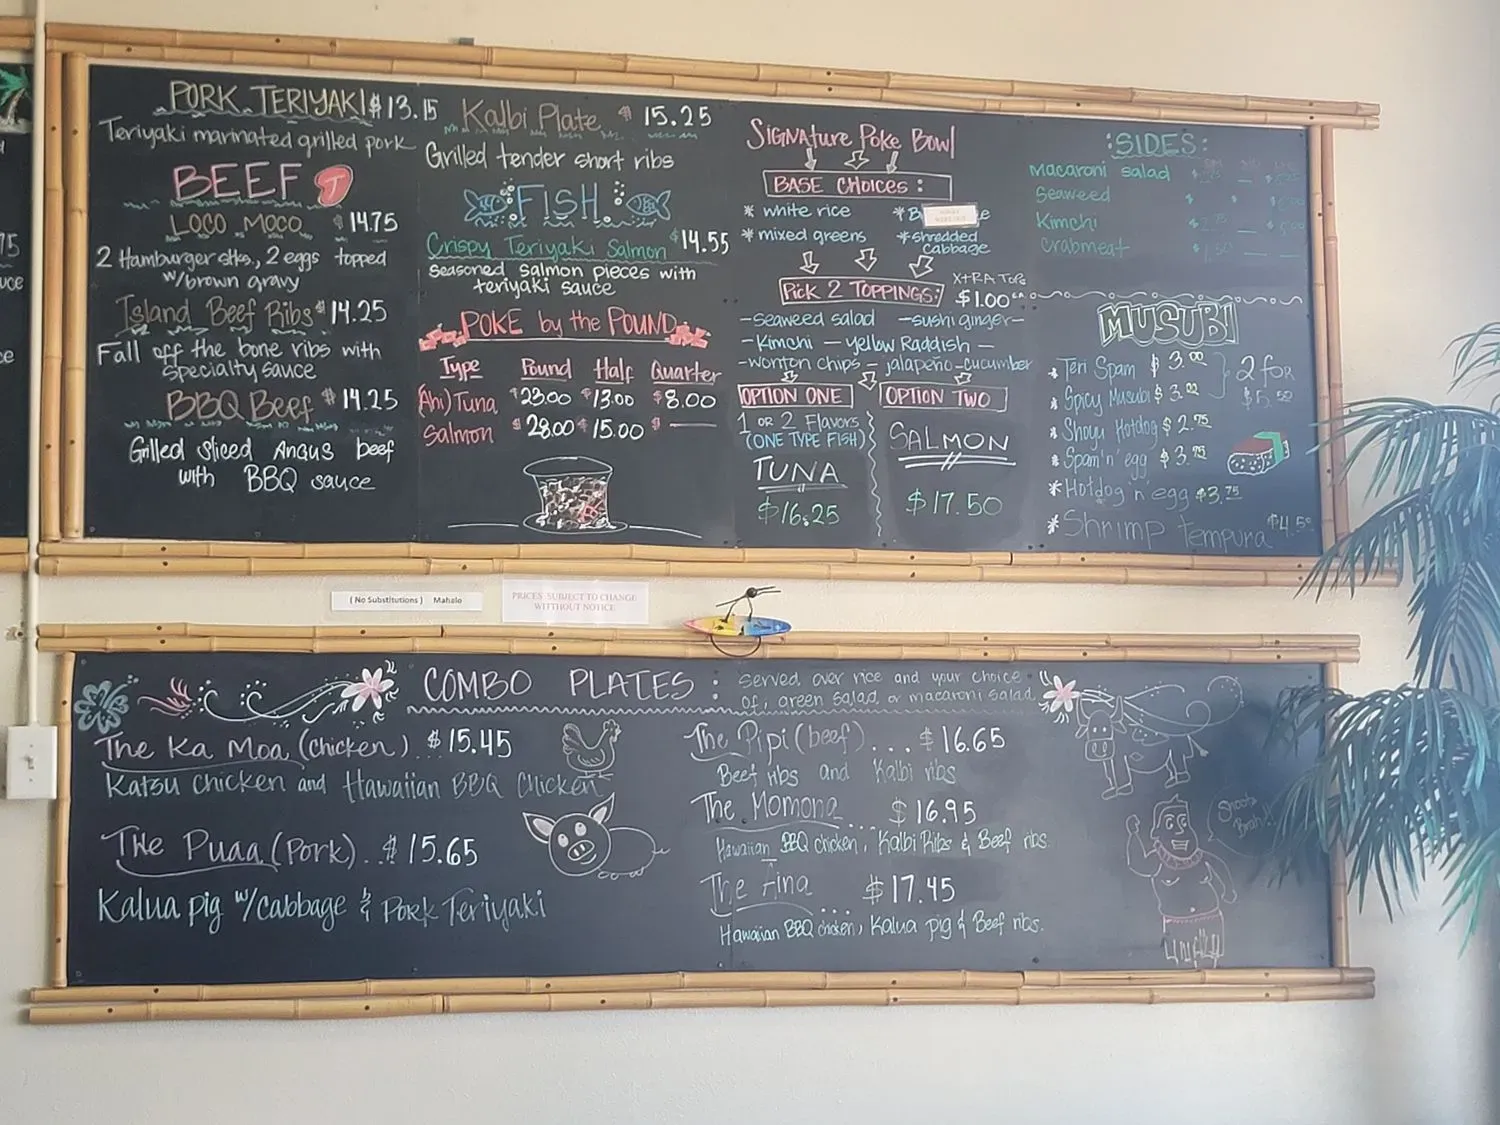 PORK TERIYAKI $13.15
Teriyaki marinated grilled pork
BEEF
LOCO MOCO $14.75
2 Hamburger stks., 2 eggs topped
w/brown gravy
Island Beef Ribs $14.25
Fall off the bone ribs with
specialty sauce
BBQ Beef $14.25
Grilled sliced Angus beef
with BBQ sauce
Kalbi Plate $15.25
Grilled tender short ribs
FISH
Crispy Teriyaki Salmon $14.55
seasoned salmon pieces with
teriyaki sauce
POKE by the POUND
Type Pound Half Quarter
(Ahi) Tuna $23.00 $13.00 $8.00
Salmon $28.00 $15.00 $ —
SIGNATURE POKE BOWL
BASE CHOICES:
* white rice
* mixed greens
* shredded
cabbage
Pick 2 TOPPINGS:
XTRA TOPS
$1.00 ea.
-seaweed salad -sushi ginger-
-Kimchi - yellow Raddish -
-wonton chips - jalapeño -cucumber
OPTION ONE
1 OR 2 Flavors
(ONE TYPE FISH)
TUNA
$16.25
OPTION TWO
SALMON
$17.50
SIDES:
Macaroni salad
Seaweed
Kimchi
Crabmeat
MUSUBI
* Teri Spam $3.00
* Spicy Musubi $3.00
2 for
* Shoyu Hotdog $2.75
* Spam 'n' egg $3.75
* Hotdog 'n' egg $3.75
* Shrimp Tempura
(No Substitutions) Mahalo
PRICES SUBJECT TO CHANGE
WITTHOUT NOTICE
COMBO PLATES:
served over rice and your choice
of; green salad, or macaroni salad.
The Ka Moa (chicken) $15.45
Katsu chicken and Hawaiian BBQ Chicken
The Puaa (Pork)...$15.65
Kalua pig w/cabbage & Pork Teriyaki
The Pipi (beef)... $16.65
Beef ribs and Kalbi ribs
The Momona... $16.95
Hawaiian BBQ chicken, Kalbi Ribs & Beef ribs.
The Aina... $17.45
Hawaiian BBQ chicken, Kalua pig & Beef ribs.
Shoots
Brah!!